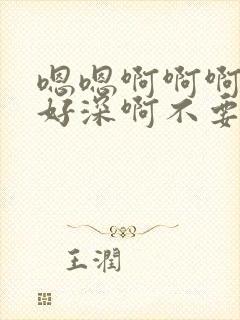 嗯嗯啊啊啊
好深啊不要
王潤